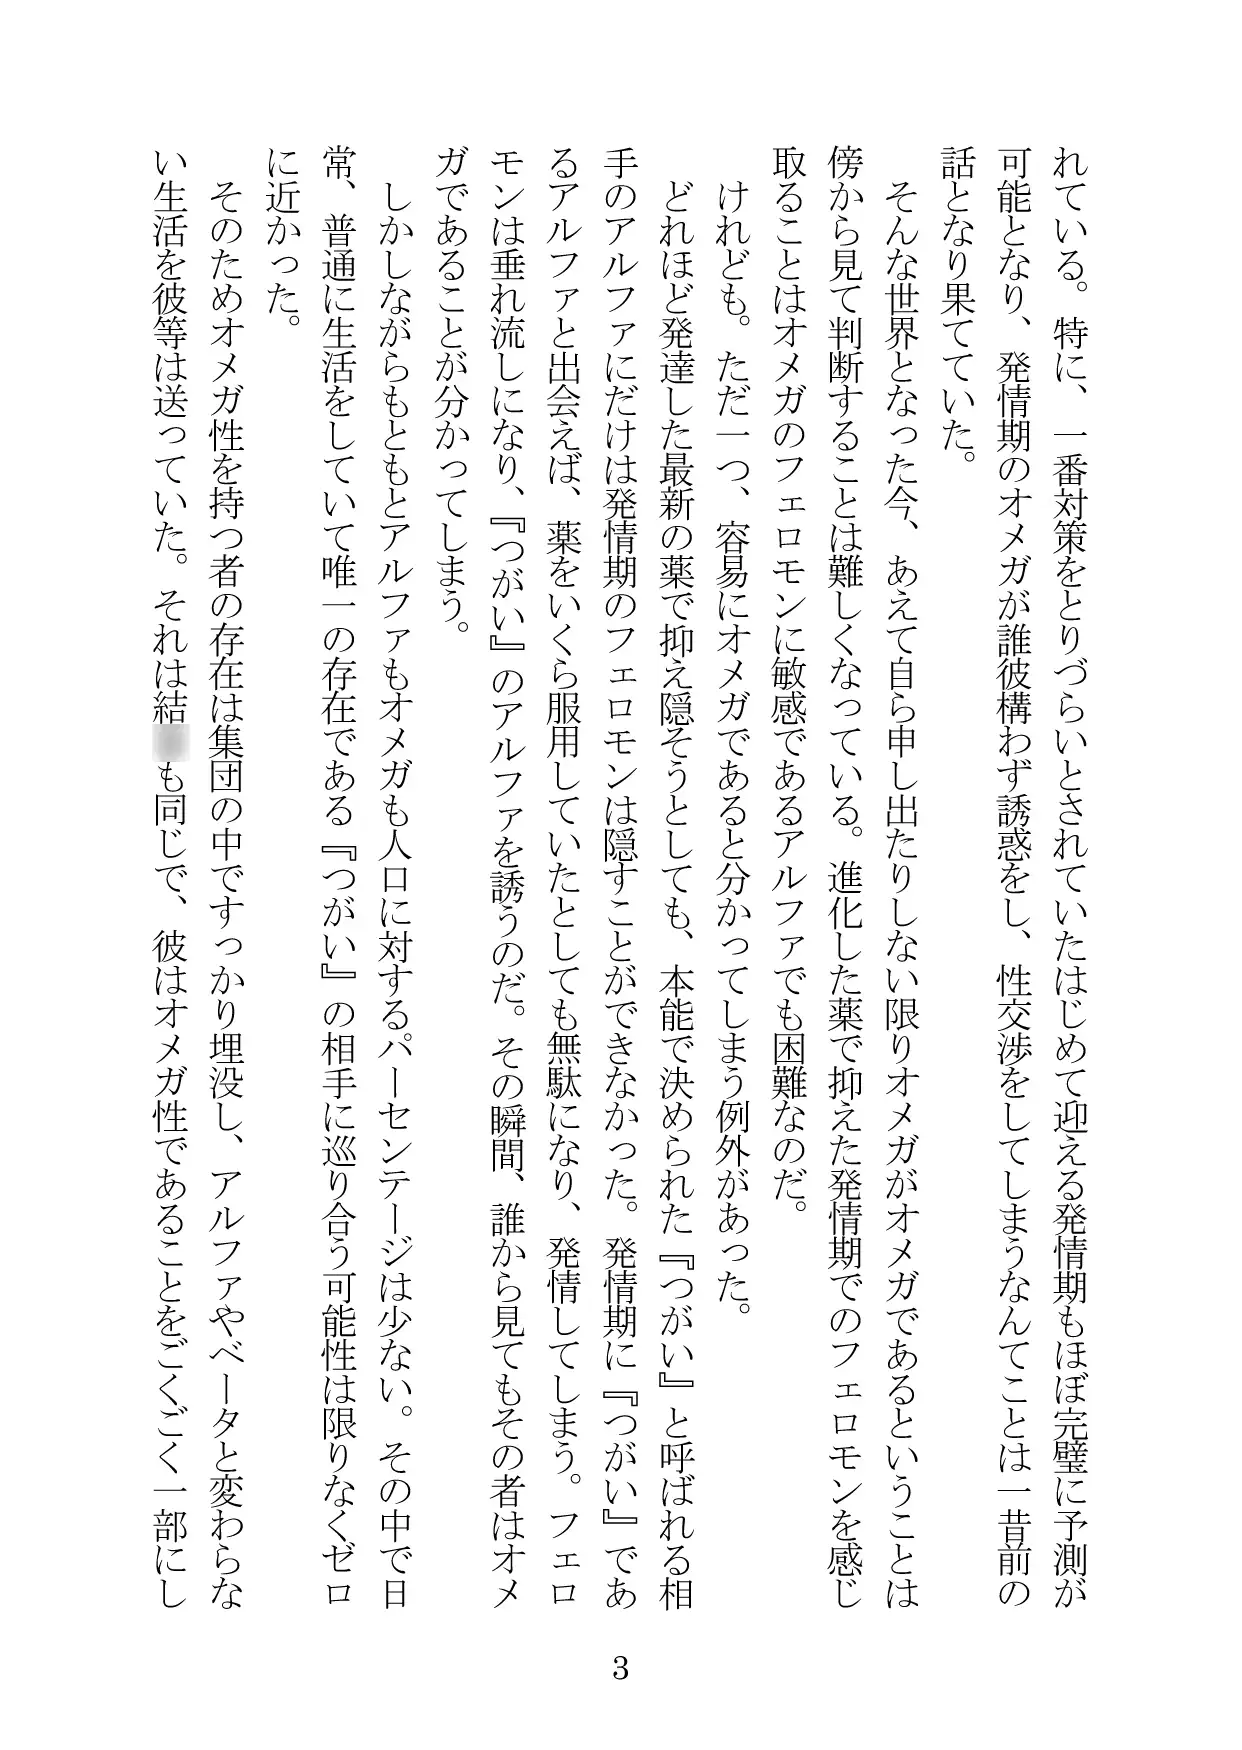 れている。特に、一番対策をとりづらいとされていたはじめて迎える発情期もほぼ完璧に予測が
可能となり、発情期のオメガが誰彼構わず誘惑をし、性交渉をしてしまうなんてことは一昔前の
話となり果てていた。
そんな世界となった今、あえて自ら申し出たりしない限りオメガがオメガであるということは
傍から見て判断することは難しくなっている。進化した薬で抑えた発情期でのフェロモンを感じ
取ることはオメガのフェロモンに敏感であるアルファでも困難なのだ。
けれども。ただ一つ、容易にオメガであると分かってしまう例外があった。
どれほど発達した最新の薬で抑え隠そうとしても、本能で決められた『つがい』と呼ばれる相
手のアルファにだけは発情期のフェロモンは隠すことができなかった。発情期に『つがい』であ
るアルファと出会えば、薬をいくら服用していたとしても無駄になり、発情してしまう。フェロ
モンは垂れ流しになり、『つがい』のアルファを誘うのだ。その瞬間、誰から見てもその者はオメ
ガであることが分かってしまう。
しかしながらもともとアルファもオメガも人口に対するパーセンテージは少ない。その中で日
常、普通に生活をしていて唯一の存在である『つがい』の相手に巡り合う可能性は限りなくゼロ
に近かった。
そのためオメガ性を持つ者の存在は集団の中ですっかり埋没し、アルファやベータと変わらな
い生活を彼等は送っていた。それは結も同じで、彼はオメガ性であることをごくごく一部にし
3